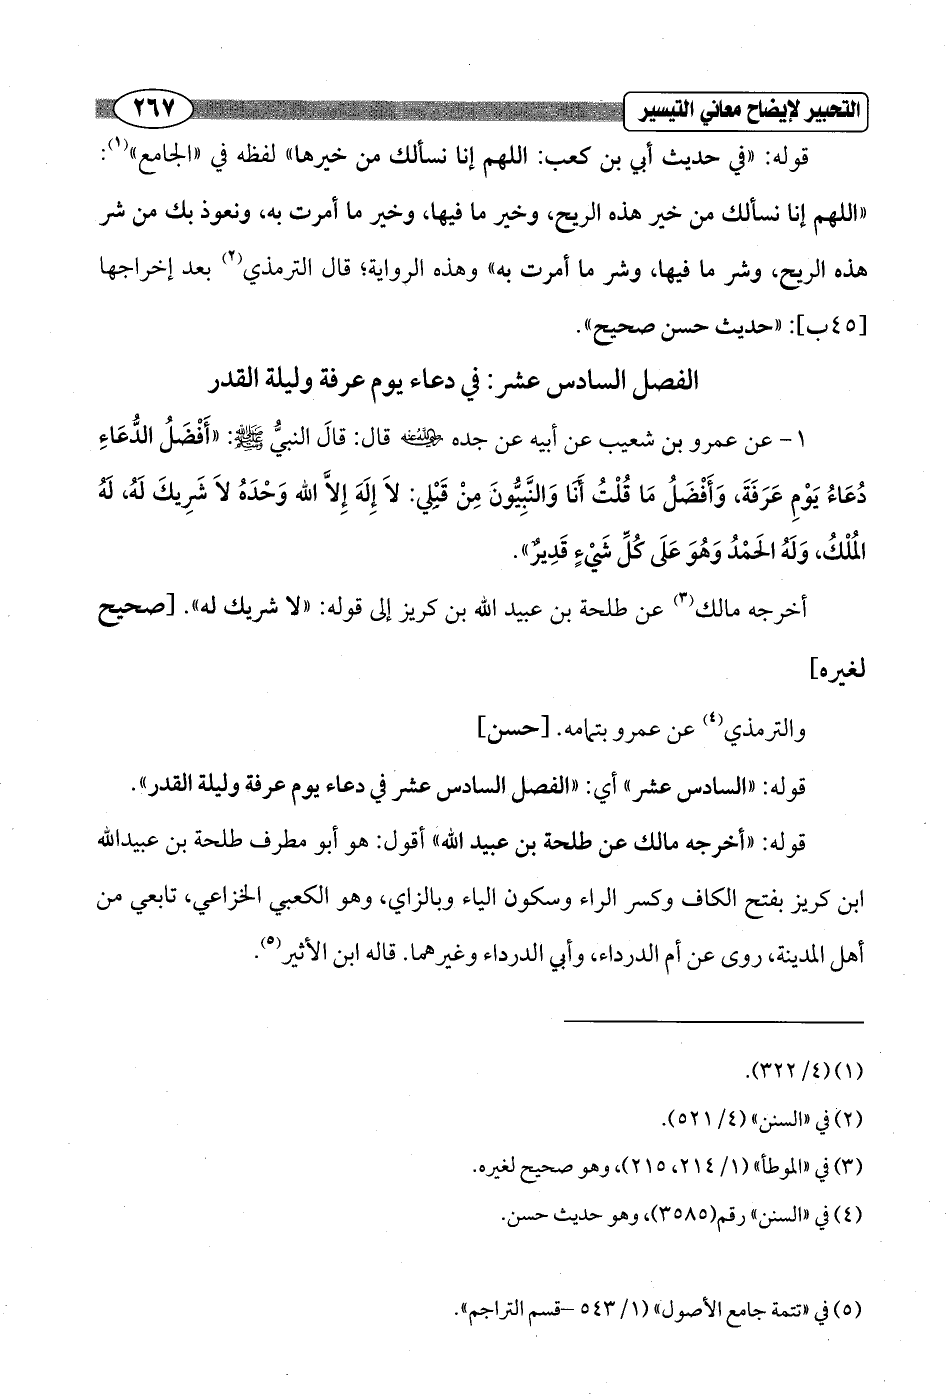 التحبير لإيضاح معاني التيسير ٢٦٧
قوله: «في حديث أبي بن كعب: اللهم إنا نسألك من خيرها» لفظه في «الجامع»(١):
«اللهم إنا نسألك من خير هذه الريح، وخير ما فيها، وخير ما أمرت به، ونعوذ بك من شر
هذه الريح، وشر ما فيها، وشر ما أمرت به» وهذه الرواية؛ قال الترمذي(٢) بعد إخراجها
[٤٥ب]: «حديث حسن صحيح».
الفصل السادس عشر: في دعاء يوم عرفة وليلة القدر
١- عن عمرو بن شعيب عن أبيه عن جده رضي الله عنه قال: قالَ النبيُّ ﷺ: «أَفْضَلُ الدُّعَاءِ
دُعَاءُ يَوْمِ عَرَفَةَ، وَأَفْضَلُ مَا قُلْتُ أَنَا وَالنَّبِيُّونَ مِنْ قَبْلِي: لاَ إِلَهَ إِلاَّ الله وَحْدَهُ لاَ شَرِيكَ لَهُ، لَهُ
المُلْكُ، وَلَهُ الحَمْدُ وَهُوَ عَلَى كُلِّ شَيْءٍ قَدِيرٌ».
أخرجه مالك(٣) عن طلحة بن عبيد الله بن كريز إلى قوله: «لا شريك له». [صحيح
لغيره]
والترمذي(٤) عن عمرو بتمامه. [حسن]
قوله: «السادس عشر» أي: «الفصل السادس عشر في دعاء يوم عرفة وليلة القدر».
قوله: «أخرجه مالك عن طلحة بن عبيد الله» أقول: هو أبو مطرف طلحة بن عبيدالله
ابن كريز بفتح الكاف وكسر الراء وسكون الياء وبالزاي، وهو الكعبي الخزاعي، تابعي من
أهل المدينة، روى عن أم الدرداء، وأبي الدرداء وغيرهما. قاله ابن الأثير(٥).
(١) (٤/ ٣٢٢).
(٢) في «السنن» (٤/ ٥٢١).
(٣) في «الموطأ» (١/ ٢١٤، ٢١٥)، وهو صحيح لغيره.
(٤) في «السنن» رقم(٣٥٨٥)، وهو حديث حسن.
(٥) في «تتمة جامع الأصول» (١/ ٥٤٣ –قسم التراجم».